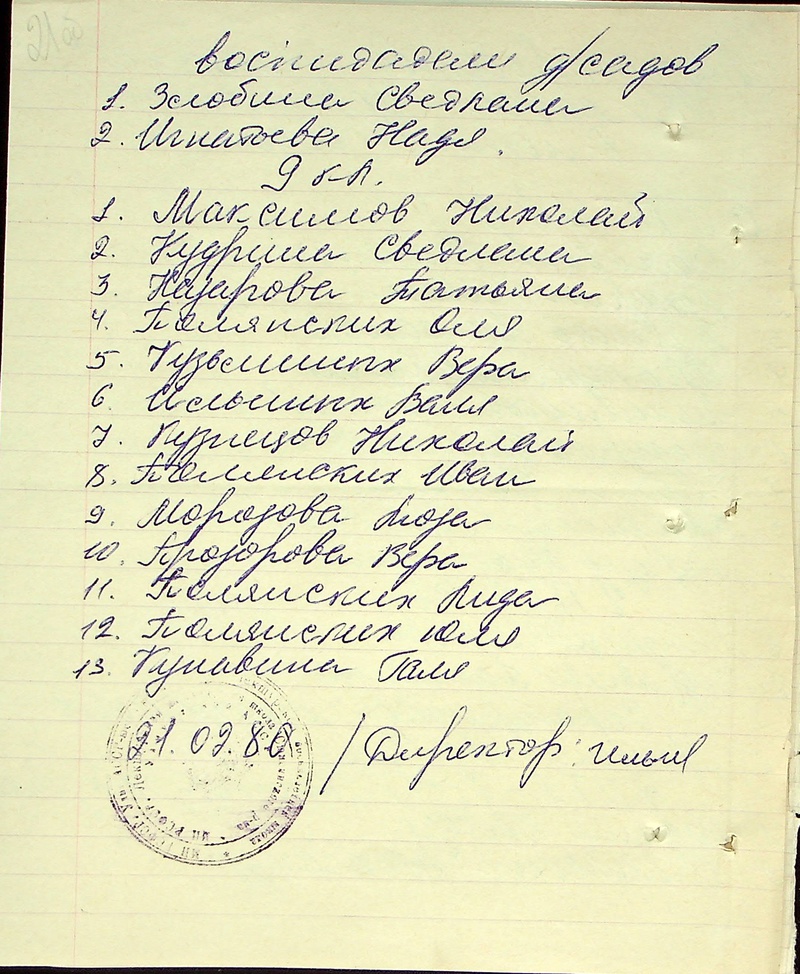 21об
воспидадели д/садов
1. Злобина Сведлана
2. Игнатьева Надя.
9 кл.
1. Максимов Николай
2. Кудрина Сведлана
3. Назарова Татьяна
4. Полянских Оля
5. Кузьминых Вера
6. Ильиных Валя
7. Кузнецов Николай
8. Полянских Иван
9. Морозова Лиза
10. Прозорова Вера
11. Полянских Лида
12. Полянских Юля
13. Купавина Галя
21.02.80 / Директор: